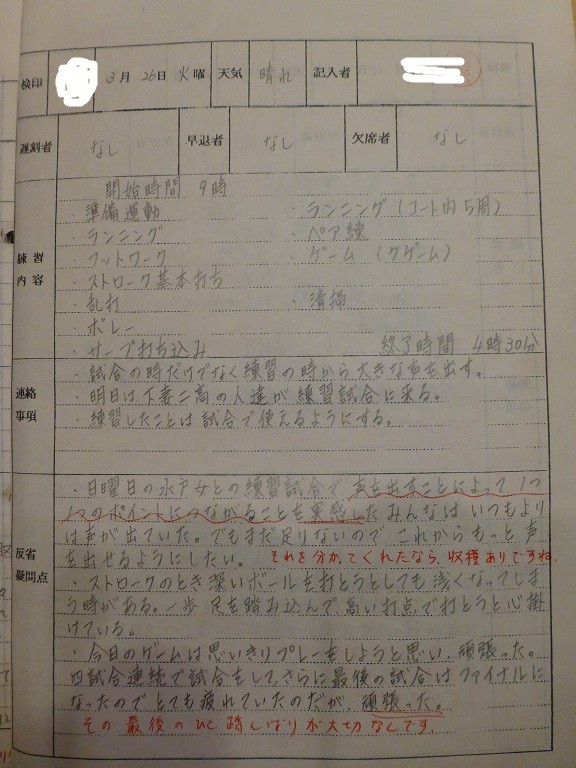 検印 3月 26日 火曜 天気 晴れ 記入者
遅刻者 なし 早退者 なし 欠席者 なし
練習内容
開始時間 9時
準備運動
・ランニング
・フットワーク
・ストローク基本打ち
・乱打
・ボレー
・サーブ打ち込み
・ランニング(コート内5周)
・ペア練
・ゲーム (7ゲーム)
・清掃
終了時間 4時30分
連絡事項
・試合の時だけでなく練習の時から大きな声を出す。
・明日は下妻二高の人達が練習試合に来る。
・練習したことは試合で使えるようにする。
反省疑問点
・日曜日の水戸女との練習試合で、声を出すことによって1つ
1つのポイントにつながることを実感した。みんなはいつもより
は声が出ていた。でもまだ足りないので、これからもっと声
を出せるようにしたい。 それを分かってくれたなら、収穫ありですね。
・ストロークのとき深いボールを打とうとしても浅くなってしま
う時がある。一歩足を踏み込んで高い打点で打とうと心掛
けている。
・今日のゲームは思いきりプレーをしようと思い、頑張った。
四試合連続で試合をして、さらに最後の試合はファイナルに
なったのでとても疲れていたのだが、頑張った。
その最後のひと踏んばりが大切なんです。